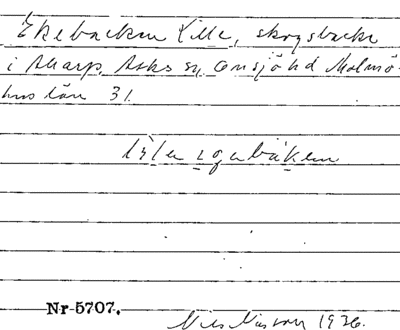 Ekebacken Lille, skogsbacke
i Akarp, Asks sn, Onsjö hd Malmö-
hus län 31.
lila egabäken
Nr 5707.
Nils Nilsson 1936.